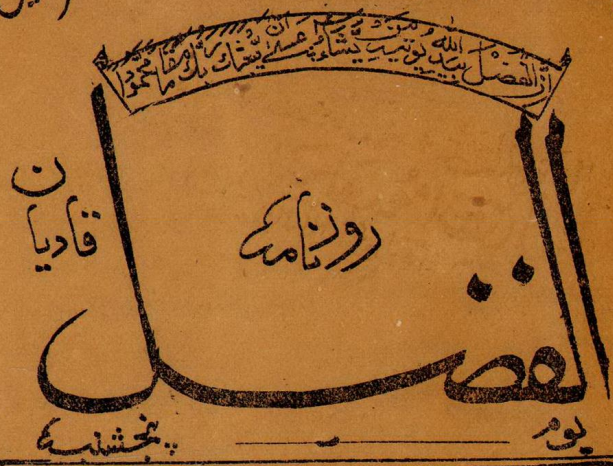 ان الفضل بید الله یوتیه من یشاء عسیٰ ان یبعثک ربک مقاما محمودا
روزنامہ
قادیان
الفضل
یوم پنجشنبہ